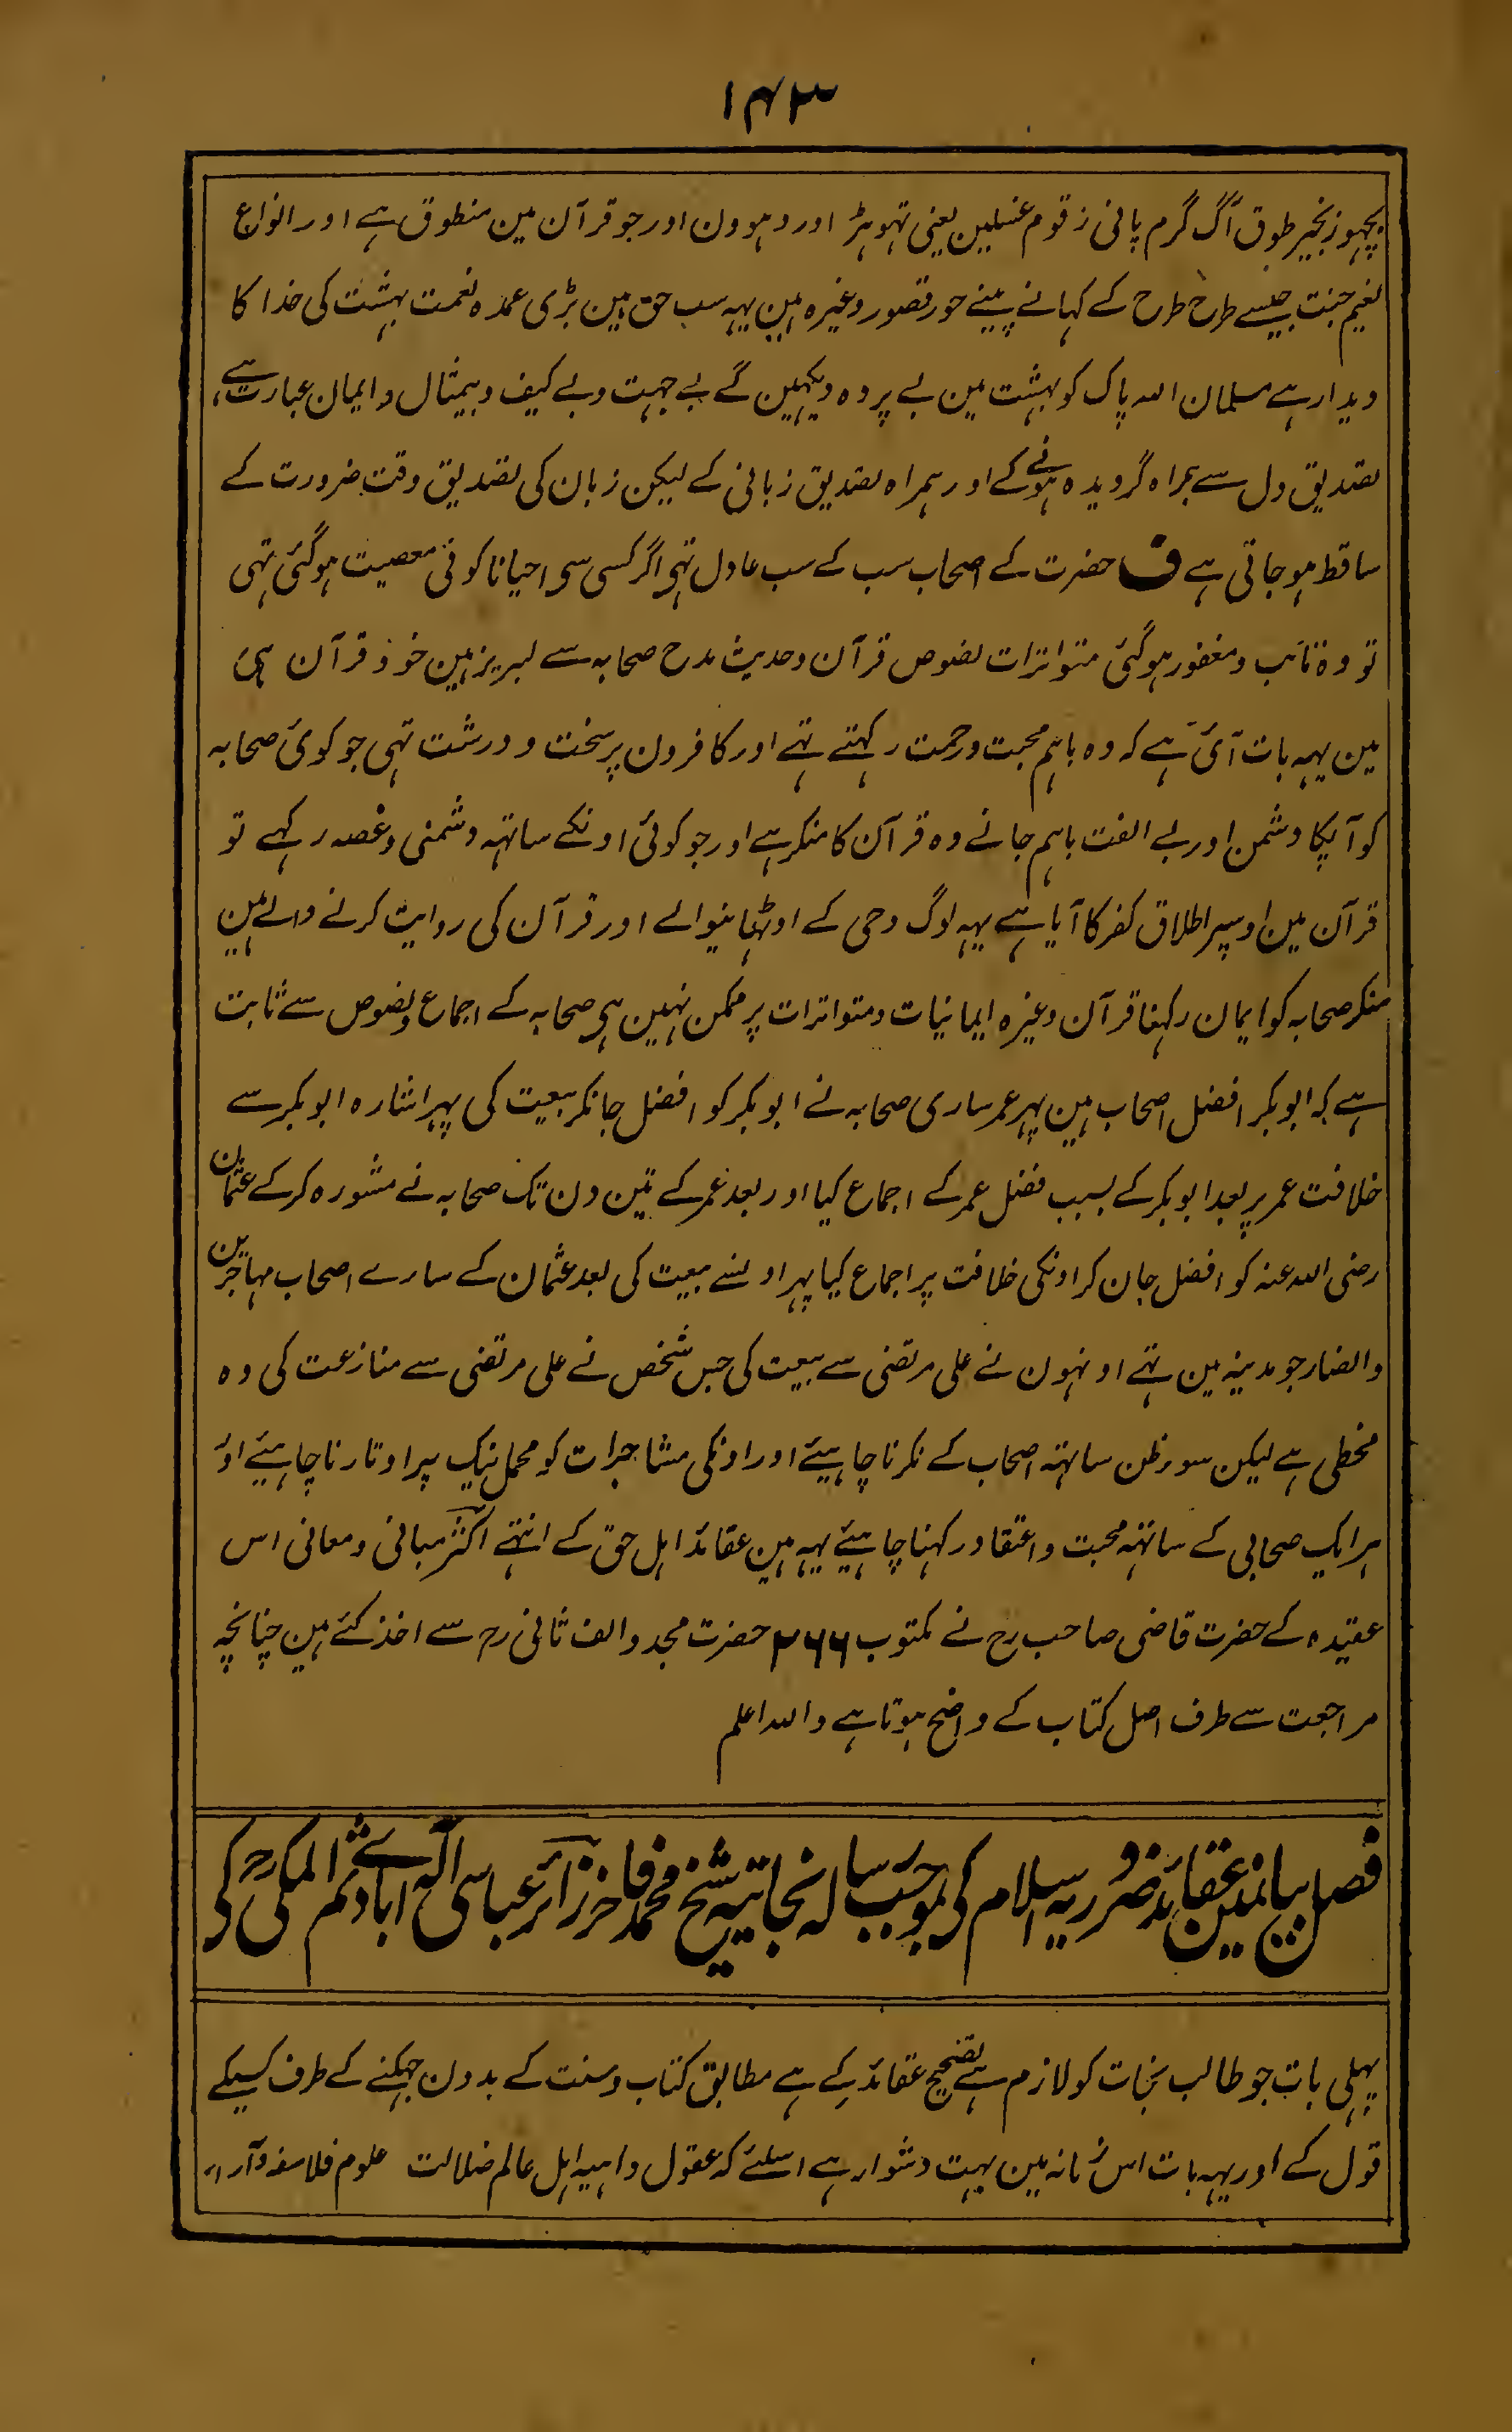 ۱۴۳
بچہو زنجیر طوق آگ گرم پانی زقوم غسلین یعنی تہوہڑ اور دہوون اور جو قرآن مین منطوق ہے اور انواع
نعیم جنت جیسے طرح طرح کے کہانے پینے حور قصور وغیرہ ہین یہہ سب حق ہین بڑی عمدہ نعمت بہشت کی خدا کا
دیدار ہے مسلمان اللہ پاک کو بہشت مین بے پردہ دیکہین گے بے جہت و بے کیف و بیمثال و ایمان عبارت ہے
تصدیق دل سے ہمراہ گرویدہ ہونے کے اور ہمراہ تصدیق زبانی کے لیکن زبان کی تصدیق وقت ضرورت کے
ساقط ہو جاتی ہے ف حضرت کے اصحاب سب کے سب عادل تہی اگر کسی سی احیانا کوئی معصیت ہو گئی تہی
تو وہ تائب و مغفور ہو گئی متواترات نصوص قرآن و حدیث مدح صحابہ سے لبریز ہین خود قرآن ہی
مین یہہ بات آئی ہے کہ وہ باہم محبت و رحمت رکہتے تہے اور کافرون پر سخت و درشت تہی جو کوئی صحابہ
کو آپکا دشمن اور بے الفت باہم جانے وہ قرآن کا منکر ہے اور جو کوئی اونکے ساتہہ دشمنی و غصہ رکہے تو
قرآن مین اوسپر اطلاق کفر کا آیا ہے یہہ لوگ وحی کے اوٹہانیوالے اور قرآن کی روایت کرنے والے ہین
منکر صحابہ کو ایمان رکہنا قرآن وغیرہ ایمانیات و متواترات پر ممکن نہین ہی صحابہ کے اجماع و نصوص سے ثابت
ہے کہ ابو بکر افضل اصحاب ہین پہر عمر ساری صحابہ نے ابو بکر کو افضل جانکر بیعت کی پہر اشارہ ابو بکر سے
خلافت عمر پر بعد ابو بکر کے بسبب فضل عمر کے اجماع کیا اور بعد عمر کے تین دن تک صحابہ نے مشورہ کر کے عثمان
رضی اللہ عنہ کو افضل جان کر اونکی خلافت پر اجماع کیا پہر اونسے بیعت کی بعد عثمان کے سارے اصحاب مہاجرین
و انصار جو مدینہ مین تہے اونہون نے علی مرتضی سے بیعت کی جس شخص نے علی مرتضی سے منازعت کی وہ
مخطی ہے لیکن سوءظن ساتہہ اصحاب کے نکرنا چاہیئے اور اونکی مشاجرات کو محمل نیک پر اوتارنا چاہیئے اور
ہر ایک صحابی کے ساتہہ محبت و اعتقاد رکہنا چاہیئے یہہ ہین عقائد اہل حق کے انتہے اکثر مبانی و معانی اس
عقیدہ کے حضرت قاضی صاحب رح نے مکتوب ۲۶۶ حضرت مجدد الف ثانی رح سے اخذ کئے ہین چنانچہ
مراجعت سے طرف اصل کتاب کے واضح ہوتا ہے واللہ اعلم
فصل بیانمین عقائد ضروریہ اسلام کی بموجب رسالہ نجاتیہ شیخ محمد فاخر زائر عباسی الہ آبادی ثم المکی رح کی
پہلی بات جو طالب نجات کو لازم ہے تصحیح عقائد کے ہے مطابق کتاب و سنت کے بدون جہکنے کے طرف کسیکے
قول کے اور یہہ بات اس زمانہ مین بہت دشوار ہے اسلئے کہ عقول واہیہ اہل عالم ضلالت علوم فلاسفہ و آراء